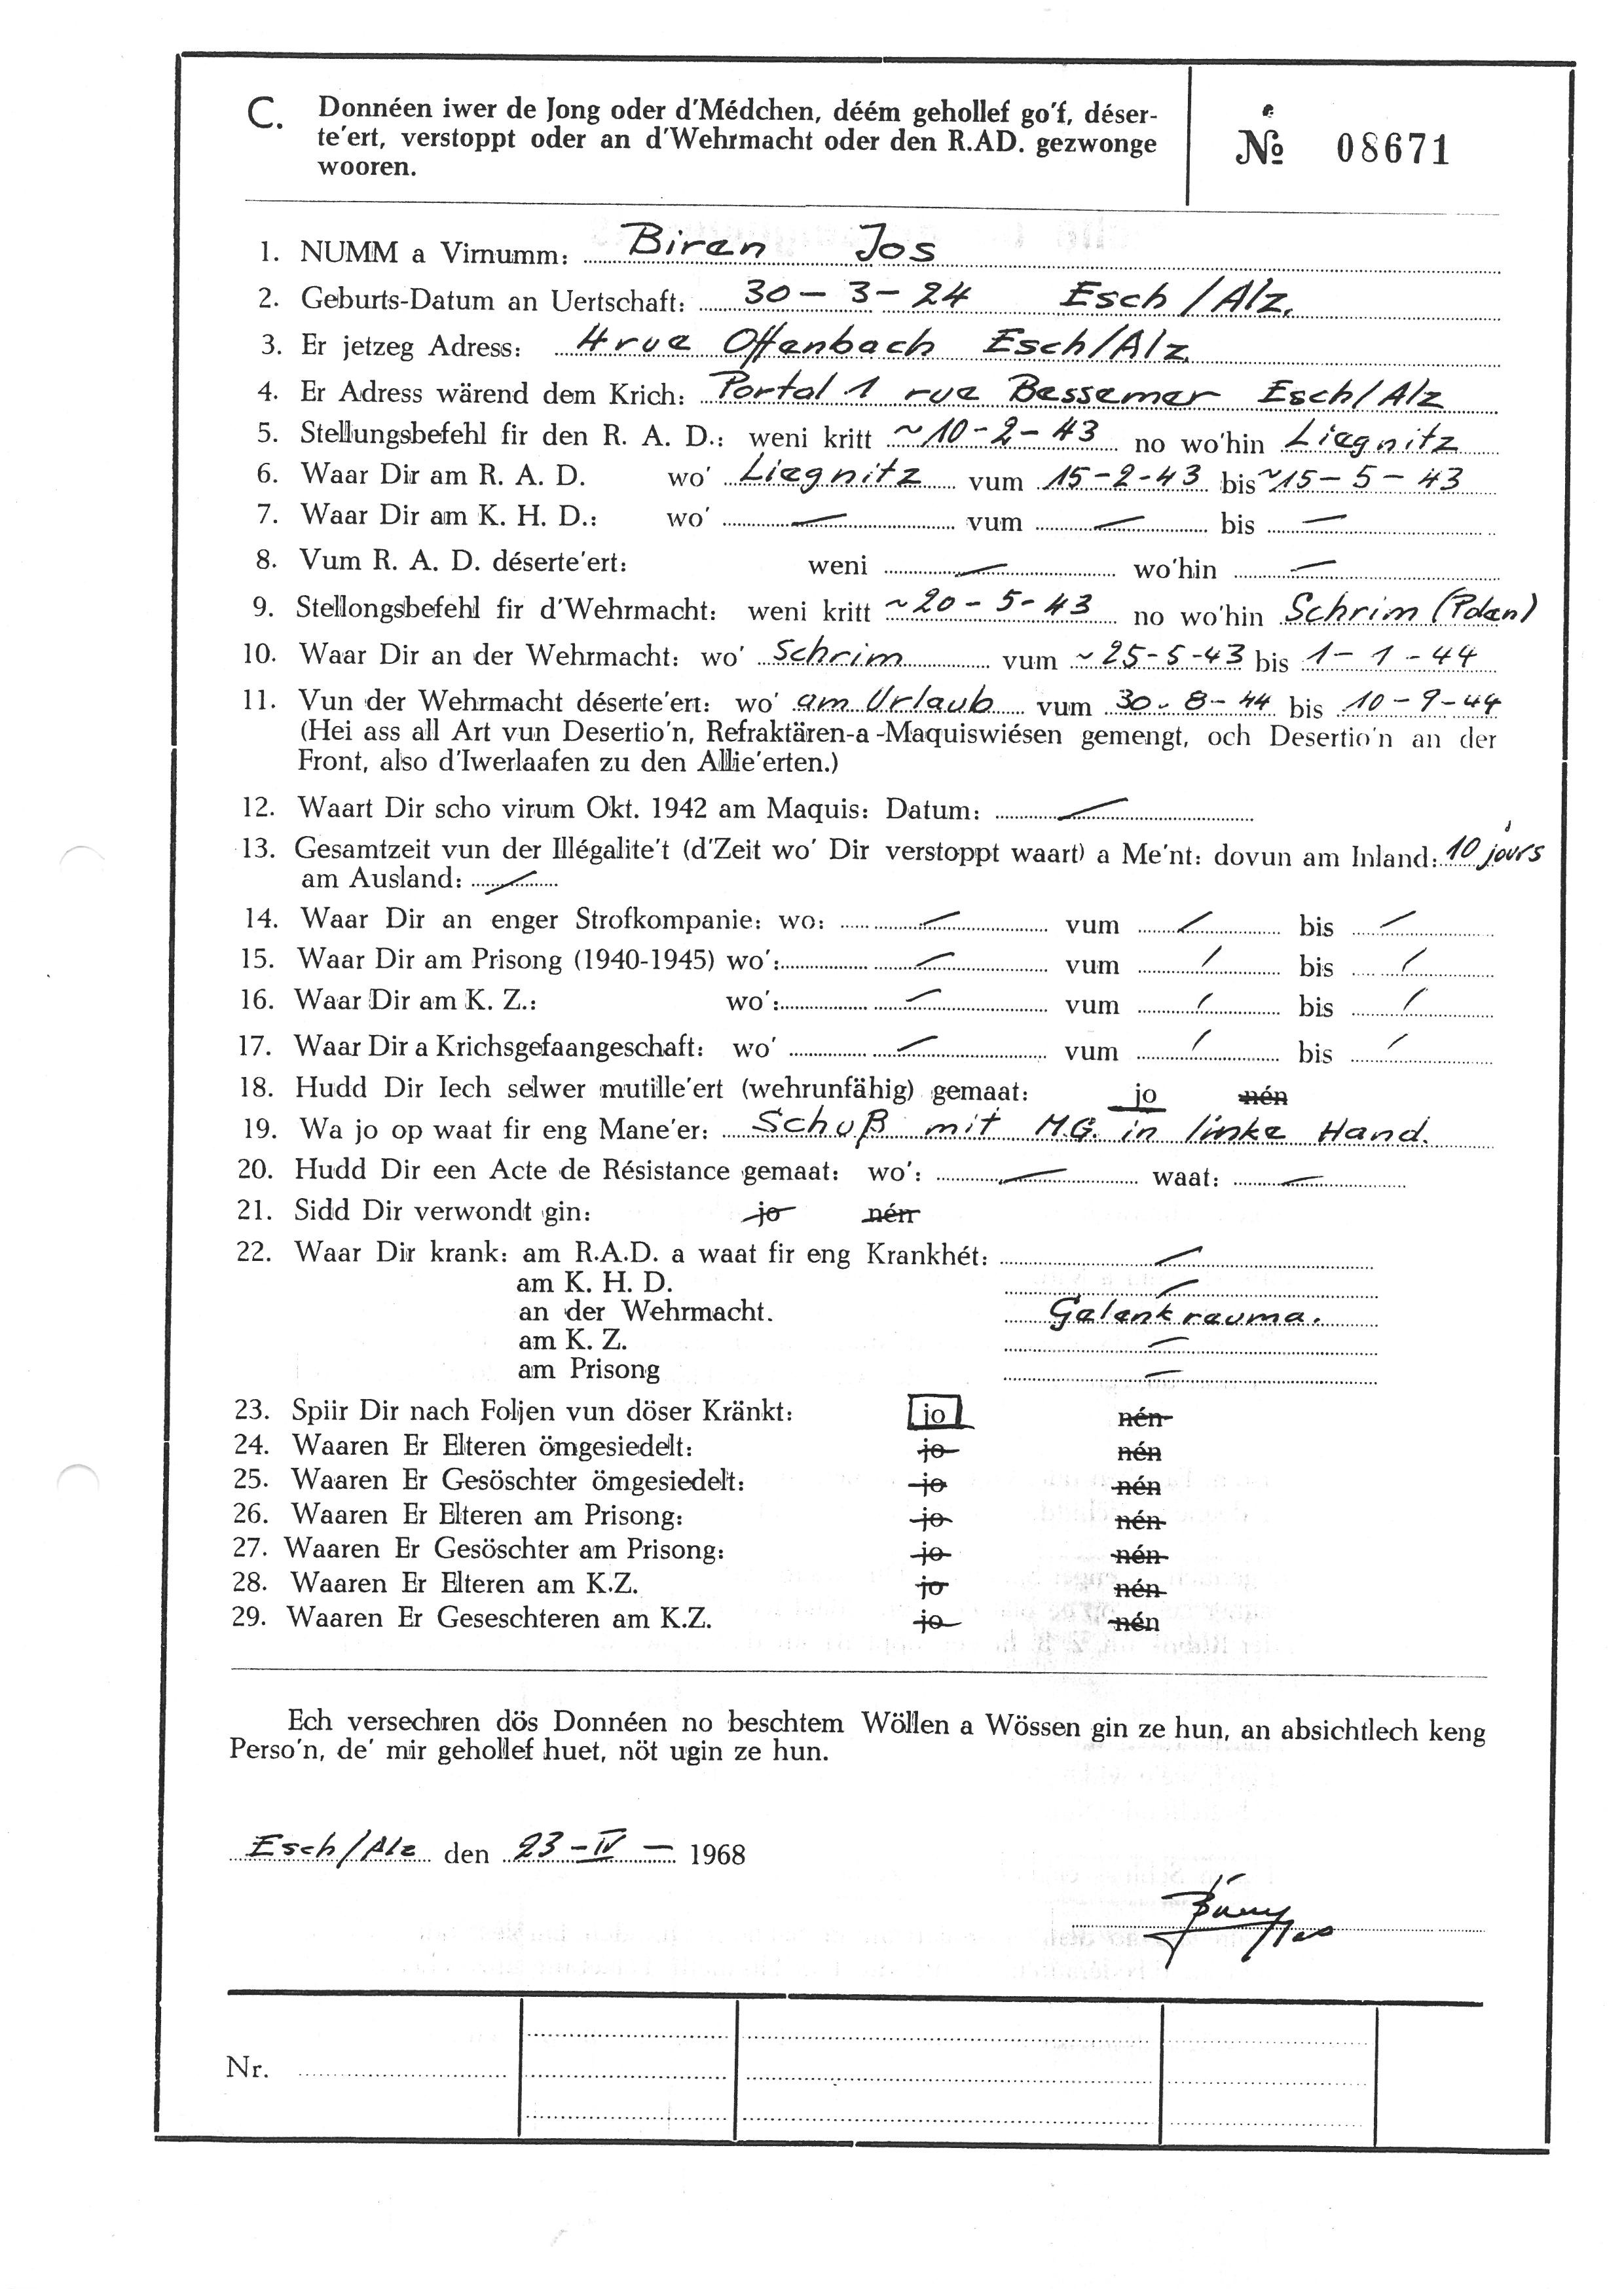 C. Donnéen iwer de Jong oder d'Médchen, déém gehollef go'f, déser-
te'ert, verstoppt oder an d'Wehrmacht oder den R.AD. gezwonge
wooren.
№ 08671
1. NUMM a Virnumm: Biren Jos
2. Geburts-Datum an Uertschaft: 30-3-24 Esch/Alz.
3. Er jetzeg Adress: 4 rue Offenbach Esch/Alz
4. Er Adress wärend dem Krich: Portal 1 rue Bessemer Esch/Alz
5. Stellungsbefehl fir den R. A. D.: weni kritt ~10-2-43 no wo'hin Liegnitz
6. Waar Dir am R. A. D. wo' Liegnitz vum 15-2-43 bis ~15-5-43
7. Waar Dir am K. H. D.: wo' — vum — bis —
8. Vum R. A. D. déserte'ert: weni — wo'hin —
9. Stellongsbefehl fir d'Wehrmacht: weni kritt ~20-5-43 no wo'hin Schrim (Polen)
10. Waar Dir an der Wehrmacht: wo' Schrim vum ~25-5-43 bis 1-1-44
11. Vun der Wehrmacht déserte'ert: wo' am Urlaub vum 30-8-44 bis 10-9-44
(Hei ass all Art vun Desertio'n, Refraktären-a-Maquiswiésen gemengt, och Desertio'n an der
Front, also d'Iwerlaafen zu den Allie'erten.)
12. Waart Dir scho virum Okt. 1942 am Maquis: Datum: —
13. Gesamtzeit vun der Illégalite't (d'Zeit wo' Dir verstoppt waart) a Me'nt: dovun am Inland: 10 jours
am Ausland: —
14. Waar Dir an enger Strofkompanie: wo: — vum — bis —
15. Waar Dir am Prisong (1940-1945) wo': — vum — bis —
16. Waar Dir am K. Z.: wo': — vum — bis —
17. Waar Dir a Krichsgefaangeschaft: wo' — vum — bis —
18. Hudd Dir Iech selwer mutille'ert (wehrunfähig) gemaat: jo nén
19. Wa jo op waat fir eng Mane'er: Schuß mit M.G. in linke Hand.
20. Hudd Dir een Acte de Résistance gemaat: wo': — waat: —
21. Sidd Dir verwondt gin: jo nén
22. Waar Dir krank: am R.A.D. a waat fir eng Krankhét: —
am K. H. D. —
an der Wehrmacht. Gelenkreuma.
am K. Z. —
am Prisong —
23. Spiir Dir nach Foljen vun döser Kränkt: jo nén
24. Waaren Er Elteren ömgesiedelt: jo nén
25. Waaren Er Gesöschter ömgesiedelt: jo nén
26. Waaren Er Elteren am Prisong: jo nén
27. Waaren Er Gesöschter am Prisong: jo nén
28. Waaren Er Elteren am K.Z. jo nén
29. Waaren Er Geseschteren am K.Z. jo nén
Ech versechren dös Donnéen no beschtem Wöllen a Wössen gin ze hun, an absichtlech keng
Perso'n, de' mir gehollef huet, nöt ugin ze hun.
Esch/Alz den 23-IV- 1968
Nr.